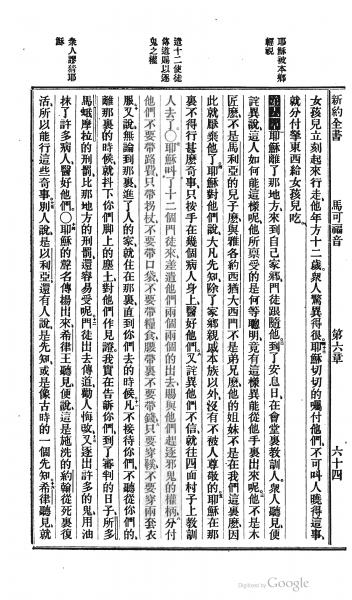 新約全書 馬可福音 第六章 六十四
女孩兒立刻起來行走他年方十二歲衆人驚異得很耶穌切切的囑付他們不可叫人曉得這事
就分付拏東西給女孩兒吃
耶穌被本鄉
輕視
耶穌離了那地方來到自己家鄉門徒跟隨他到了安息日在會堂裏教訓人衆人聽見便
詫異說這人如何能這樣呢他所禀受的是何等聰明竟有這樣異能從他手裏出來呢他不是木
匠麼不是馬利亞的兒子麼與雅各約西猶大西門不是弟兄麼他的姐妹不是在我們這裏麼因
此就厭棄他了耶穌對他們說大凡先知除了家鄉親戚本族以外沒有不被人尊敬的耶穌在那
裏不得行甚麼奇事只按手在幾個病人身上醫好他們又詫異他們不信就往四面村子上教訓
遣十二使徒
傳道賜以逐
鬼之權
人去了○耶穌叫了十二個門徒來差遣他們兩個兩個的出去賜與他們趕逐邪鬼的權柄分付
他們不要帶路費只帶拐杖不要帶口袋不要帶糧食腰帶裏不要帶錢只要穿鞋不要穿兩套衣
服又說無論到那裏進了人的家就住在那裏直到你們去的時候凡不接待你們不聽從你們的
離那裏的時候就抖下你們脚上的塵土對他們作見證我實在告訴你們到了審判的日子所多
馬蛾摩拉的刑罰比那地方的刑罰還容易受呢門徒出去傳道勸人悔改又逐出許多的鬼用油
衆人謬猜耶
穌
抹了許多病人醫好他們○耶穌的聲名傳揚出來希律王聽見便說這是施洗的約翰從死裏復
活所以能行這些奇事別人說是以利亞還有人說是先知或是像古時的一個先知希律聽見就
Digitized by Google